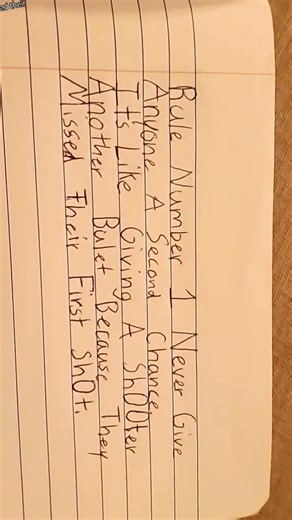 Rule Number 1 Never Give
Anyone A Second Chance.
It's Like Giving A Sh00ter
Another Bulet Because They
Missed Their First Sh0t.